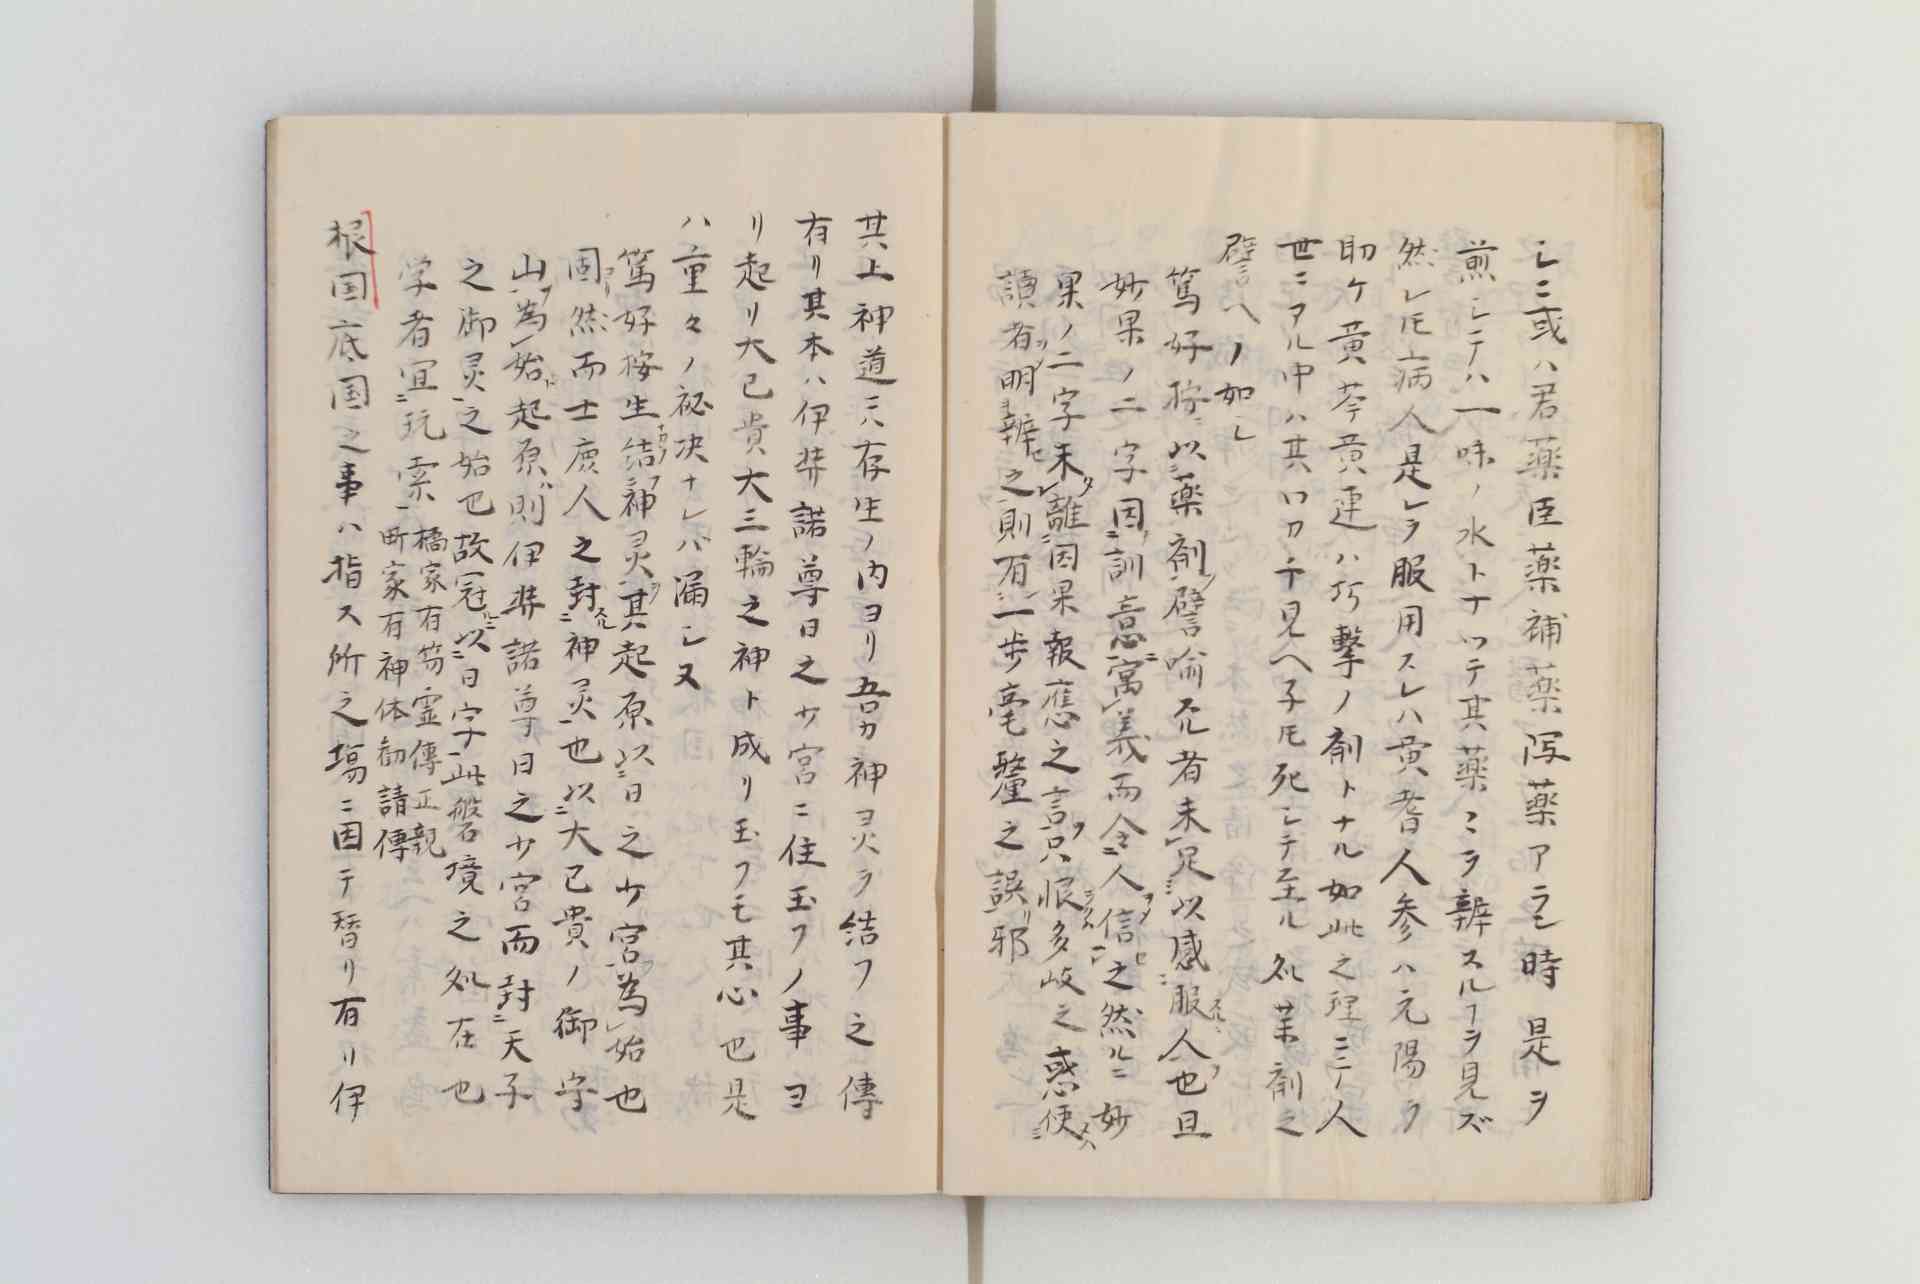 シニ或ハ君薬臣薬補薬瀉薬アラン時是ヲ
煎シテハ一味ノ水トナツテ其薬ミヲ辨スルヿヲ見ズ
然レ𪜈病人是レヲ服用スレハ黄耆人参ハ元陽ヲ
助ケ黄芩黄連ハ巧撃ノ剤トナル如此之理ニテ人
世ニアル中ハ其ワカチ見ヘ子𪜈死シテ至ル処薬剤之
譬ヘノ如シ
篤好按以薬剤譬喩尤者未足以感服人也且
妙果ノ二字因訓意寓義而令人信之然ルニ妙
果ノ二字未離因果報應之言只恨多岐之惑使
讀者明辨之則有一歩毫釐之誤邪
其上神道ニハ存生ノ内ヨリ吾カ神灵ヲ結フ之傳
有リ其本ハ伊弉諾尊日之少宮ニ住玉フノ事ヨ
リ起リ大已貴大三輪之神ト成リ玉フモ其心也是
ハ重々ノ祕决ナレバ漏シ又
篤好按生結神灵其起原以日之少宮為始也
固然而士庻人之封神灵也以大已貴ノ御字
山為始起原則伊弉諾尊日之少宮而封天子
之御灵之始也故冠以日字此磐境之処在也
学者宜玩索 橘家有芴霊傳正親
断家有神体勧請傳
根国底国之事ハ指ス所之塲ニ因テ替リ有リ伊